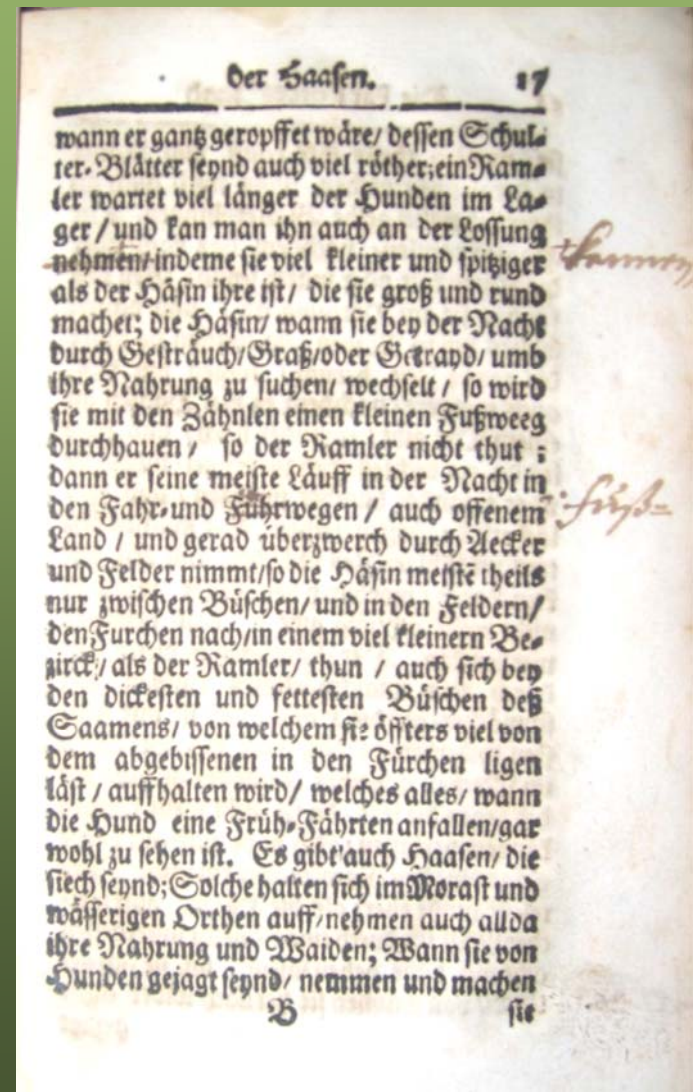 der Haasen. 17
wann er gantz geropffet wäre/ dessen Schul-
ter-Blätter seynd auch viel röther; ein Ram-
ler wartet viel länger der Hunden im La-
ger / und kan man ihn auch an der Lossung
nehmen/ indeme sie viel kleiner und spitziger
kennen
als der Häsin ihre ist / die sie groß und rund
machet; die Häsin/ wann sie bey der Nacht
durch Gesträuch/Graß/oder Getrayd/ umb
ihre Nahrung zu suchen/ wechselt / so wird
sie mit den Zähnlen einen kleinen Fußweeg
durchhauen / so der Ramler nicht thut ;
dann er seine meiste Läuff in der Nacht in
den Fahr-und Führwegen / auch offenem
Fuß=
Land / und gerad überzwerch durch Aecker
und Felder nimmt/so die Häsin meistē theils
nur zwischen Büschen/ und in den Feldern/
den Furchen nach/in einem viel kleinern Be-
zirck/ als der Ramler/ thun / auch sich bey
den dickesten und fettesten Büschen deß
Saamens/ von welchem sie öffters viel von
dem abgebissenen in den Fürchen ligen
läst / auffhalten wird/ welches alles/ wann
die Hund eine Früh-Fährten anfallen/gar
wohl zu sehen ist. Es gibt auch Haasen/ die
siech seynd; Solche halten sich im Morast und
wässerigen Orthen auff/nehmen auch allda
ihre Nahrung und Waiden; Wann sie von
Hunden gejagt seynd/ nemmen und machen
B sie